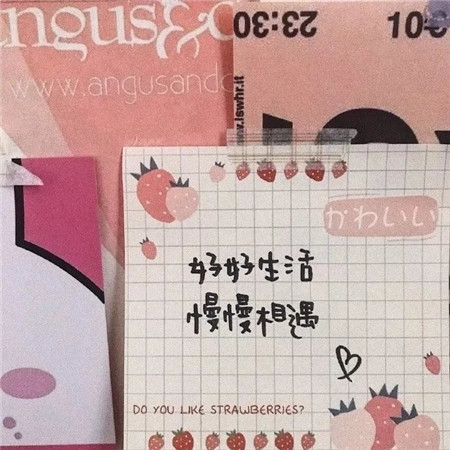 ngus&
www.angusando
23:30
10
www.lswhr.it
かわいい
好好生活
慢慢相遇
DO YOU LIKE STRAWBERRIES?